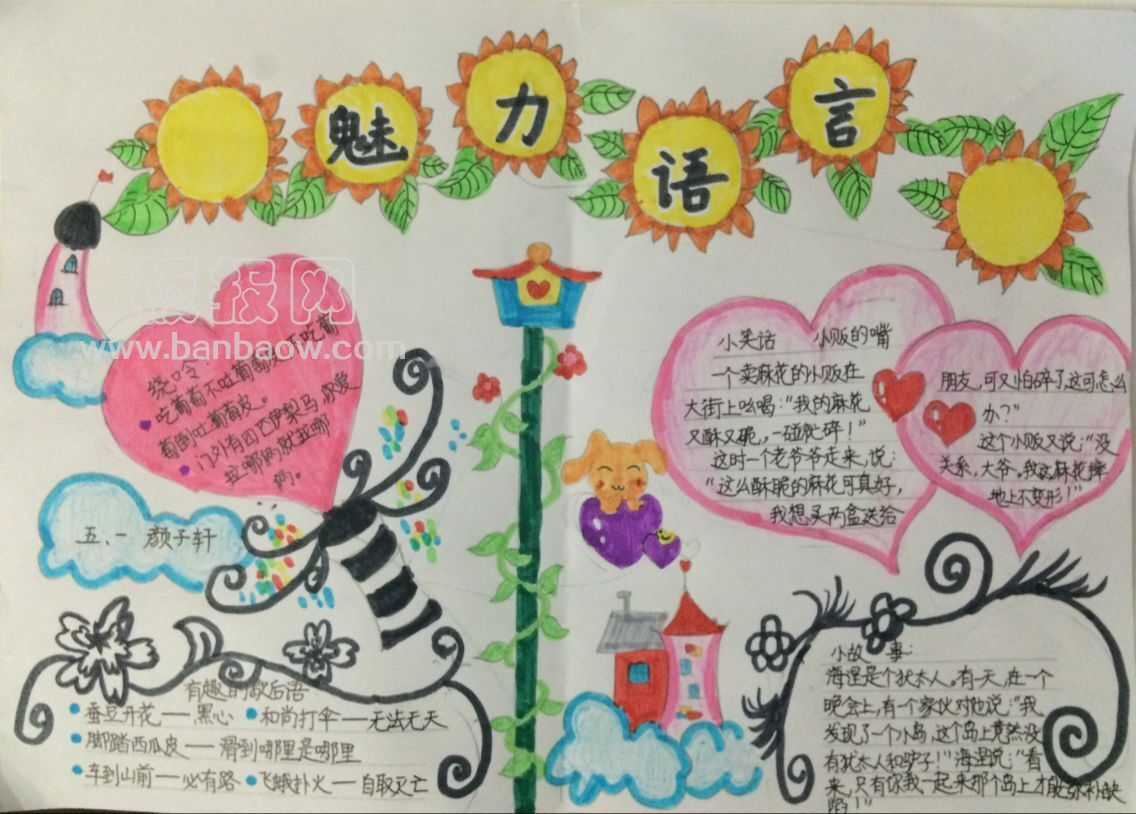 魅力语言
板报网
www.banbaow.com
绕口令:
吃葡萄不吐葡萄皮不吃葡
萄倒吐葡萄皮。
门外有四匹伊犁马,你爱
拉哪俩就拉哪
俩。
五、一 颜子轩
有趣的歇后语
蚕豆开花——黑心
和尚打伞——无法无天
脚踏西瓜皮——滑到哪里是哪里
车到山前——必有路
飞蛾扑火——自取灭亡
小笑话 小贩的嘴
一个卖麻花的小贩在
大街上吆喝:“我的麻花
又酥又脆,一碰就碎!”
这时一个老爷爷走来,说:
“这么酥脆的麻花可真好,
我想买两盒送给
朋友,可又怕碎了,这可怎么
办?”
这个小贩又说:“没
关系,大爷。我这麻花摔
地上不变形!”
小故事:
海涅是个犹太人。有一天,在一个
晚会上,有个家伙对他说:“我
发现了一个小岛,这个岛上竟然没
有犹太人和驴子!”海涅说:“看
来,只有你我一起来那个岛上才能弥补缺
陷!”